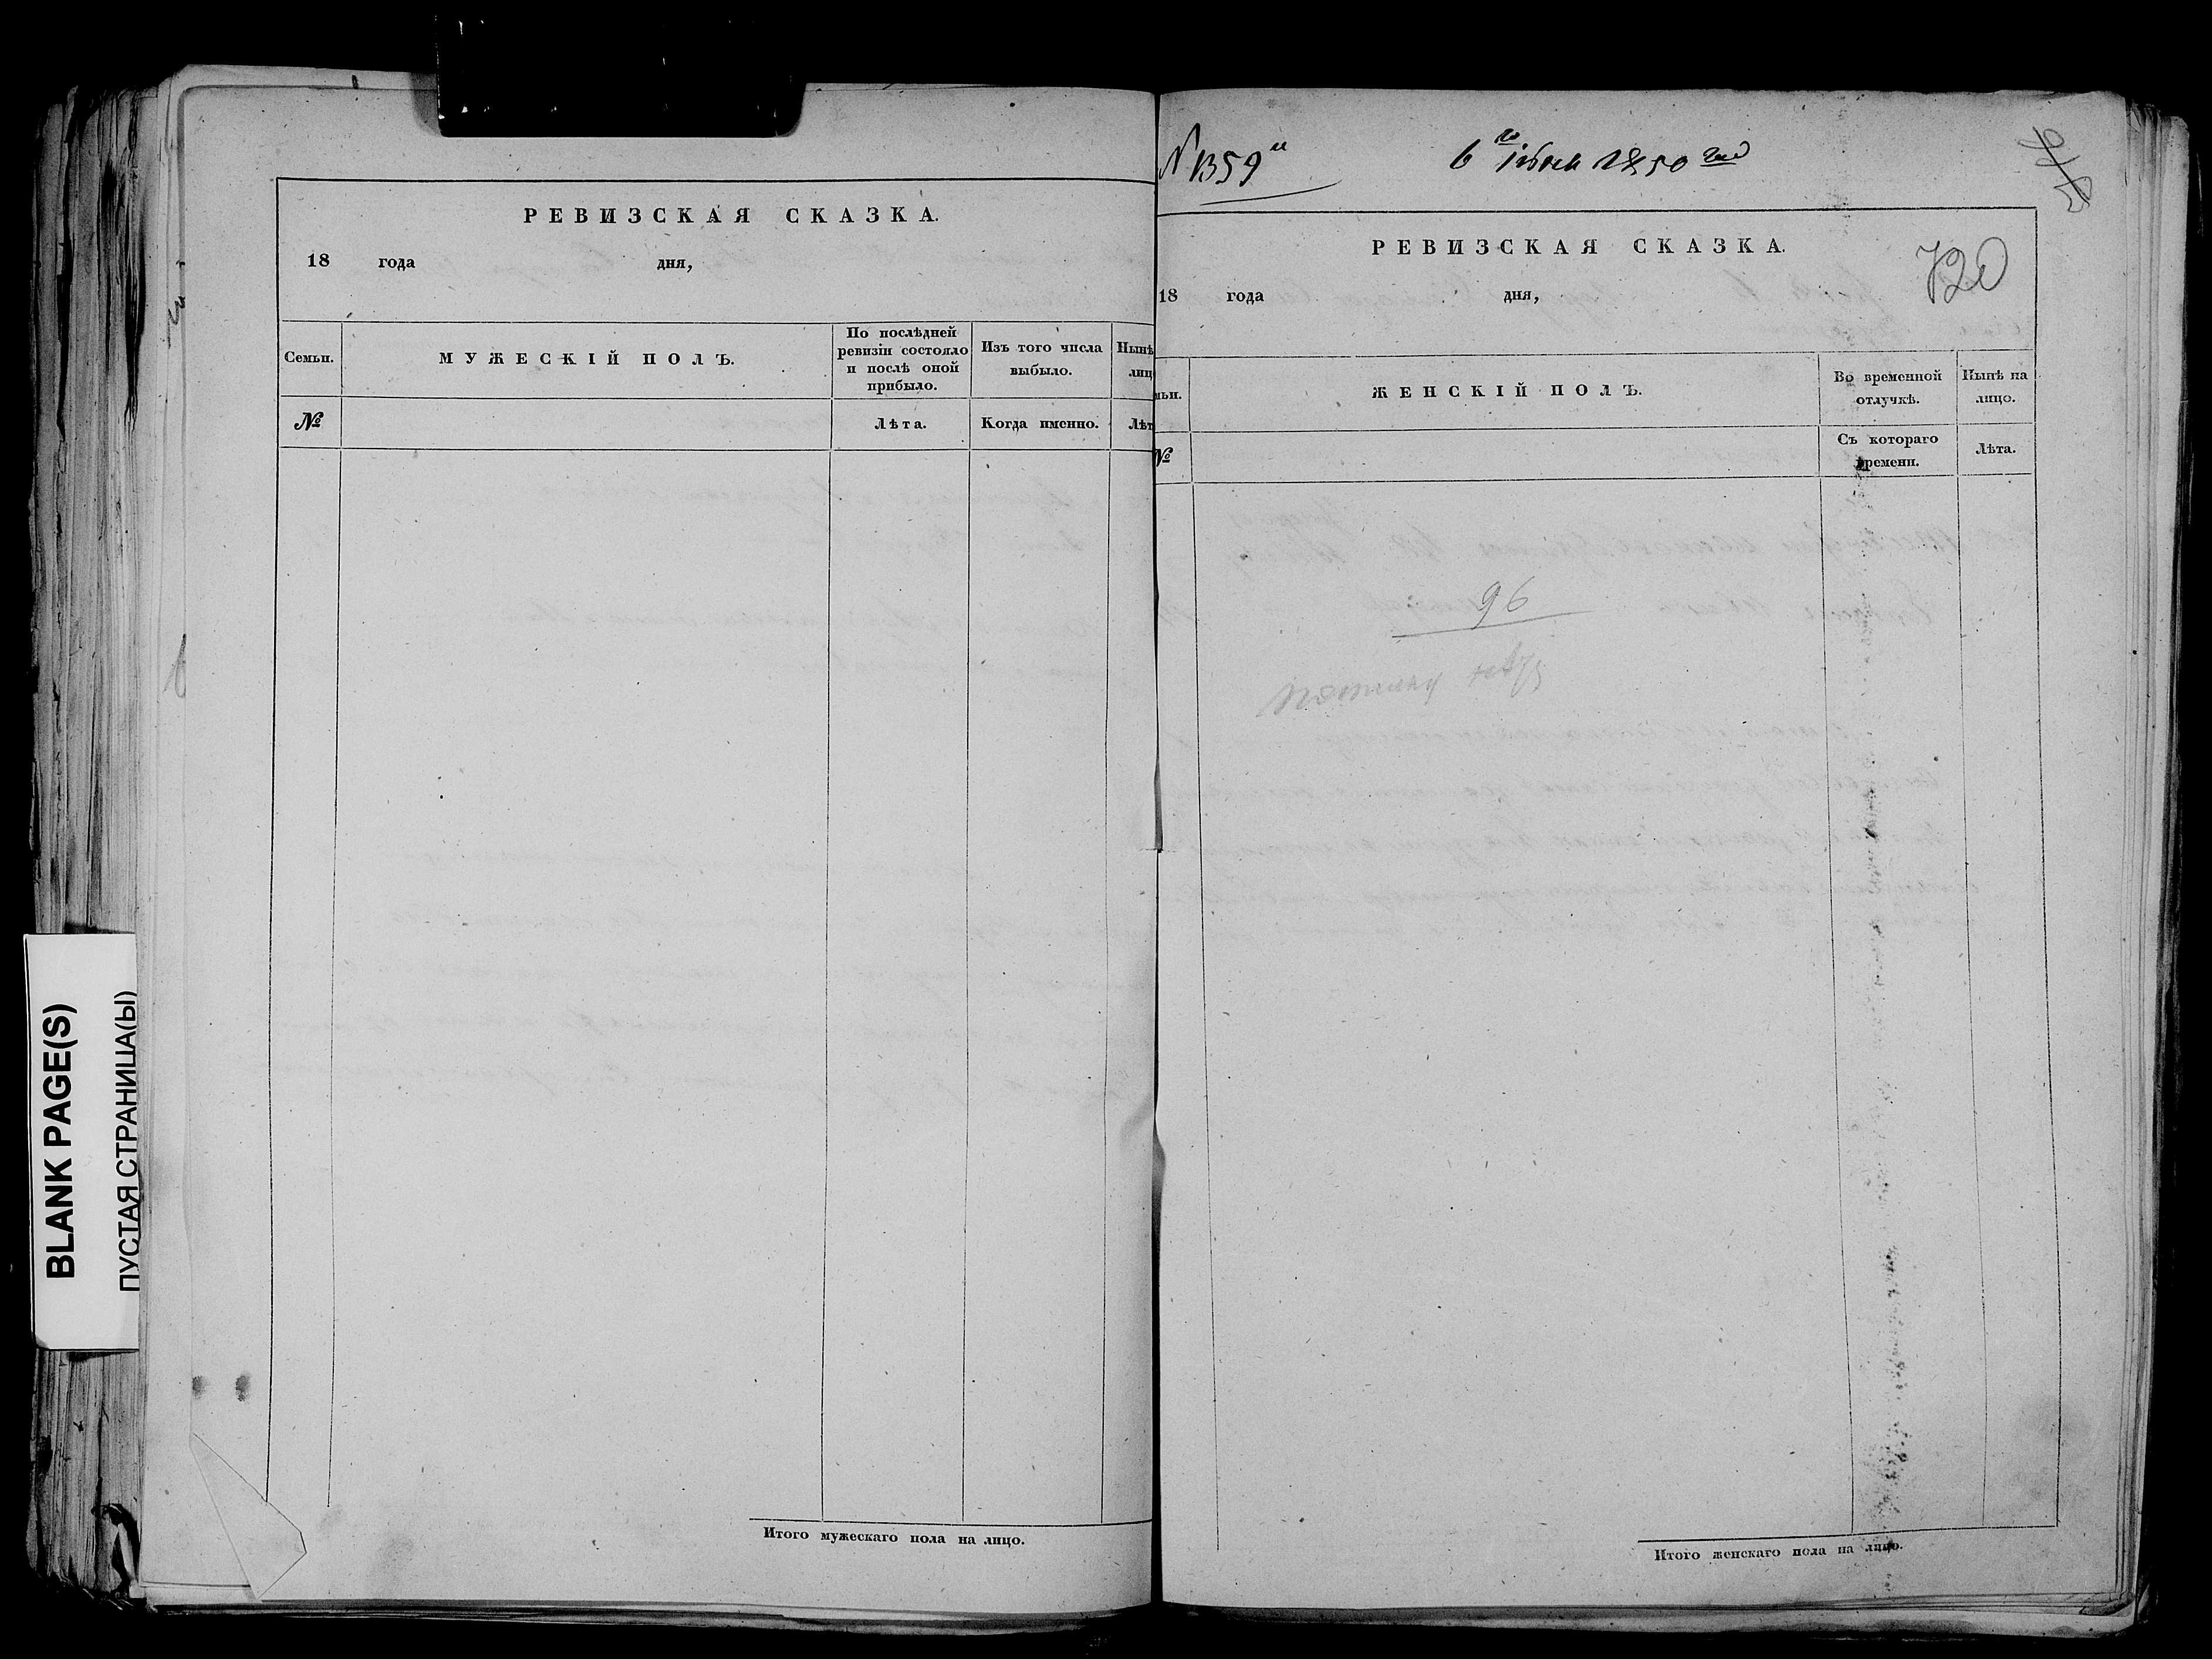 BLANK PAGE(S)
ПУСТАЯ СТРАНИЦА(Ы)
РЕВИЗСКАЯ СКАЗКА.
18 года дня,
Семьи.
МУЖЕСКІЙ ПОЛЪ.
По послѣдней
ревизіи состояло
и послѣ оной
прибыло.
Изъ того числа
выбыло.
Нынѣ
лиц
№
Лѣта.
Когда именно.
Лѣт
Итого мужескаго пола на лицо.
№ 1359
6 1850
720
РЕВИЗСКАЯ СКАЗКА.
18 года дня,
ьи.
ЖЕНСКІЙ ПОЛЪ.
Во временной
отлучкѣ.
Нынѣ на
лицо.
№
Съ котораго
времени.
Лѣта.
96
Итого женскаго пола на лицо.